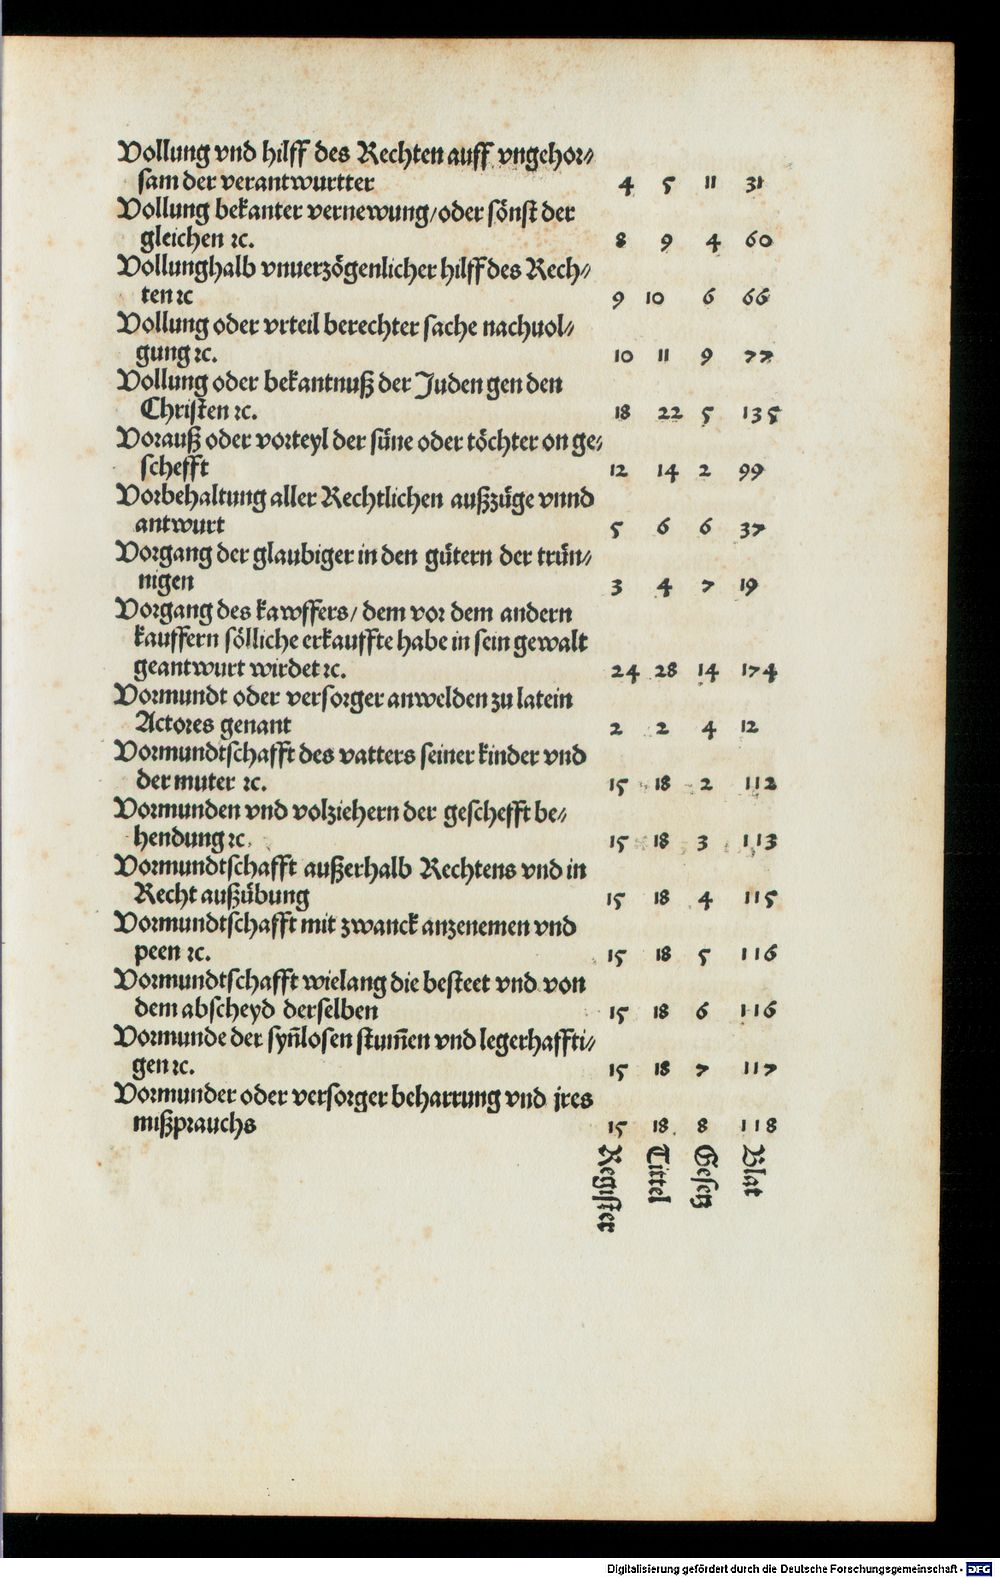 Vollung vnd hilff des Rechten auff vngehor⸗
sam der verantwurtter 4 5 11 31
Vollung bekanter vernewung/oder sönst der
gleichen ⁊c. 8 9 4 60
Vollunghalb vnuerzögenlicher hilff des Rech⸗
ten ⁊c 9 10 6 66
Vollung oder vrteil berechter sache nachuol⸗
gung ⁊c. 10 11 9 77
Vollung oder bekantnuß der Juden gen den
Christen ⁊c. 18 22 5 135
Vorauß oder vorteyl der süne oder töchter on ge⸗
schefft 12 14 2 99
Vorbehaltung aller Rechtlichen außzüge vnnd
antwurt 5 6 6 37
Vorgang der glaubiger in den gütern der trün⸗
nigen 3 4 7 19
Vorgang des kawffers/ dem vor dem andern
kauffern sölliche erkauffte habe in sein gewalt
geantwurt wirdet ⁊c. 24 28 14 174
Vormundt oder versorger anwelden zu latein
Actores genant 2 2 4 12
Vormundtschafft des vatters seiner kinder vnd
der muter ⁊c. 15 18 2 112
Vormunden vnd volziehern der geschefft be⸗
hendung ⁊c. 15 18 3 113
Vormundtschafft außerhalb Rechtens vnd in
Recht außübung 15 18 4 115
Vormundtschafft mit zwanck anzenemen vnd
peen ⁊c. 15 18 5 116
Vormundtschafft wielang die besteet vnd von
dem abscheyd derselben 15 18 6 116
Vormunde der syn̄losen stum̄en vnd legerhaffti⸗
gen ⁊c. 15 18 7 117
Vormunder oder versorger beharrung vnd jres
mißprauchs 15 18 8 118
Register Tittel Gesetz Blat
Digitalisierung gefördert durch die Deutsche Forschungsgemeinschaft - DFG